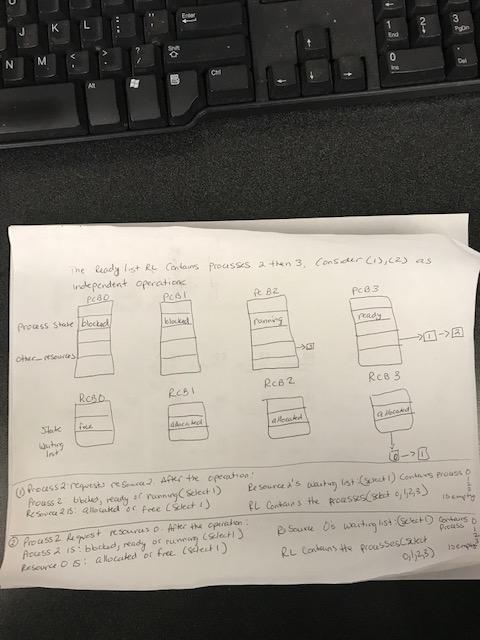 Enter
Shift
Ctrl
Alt
N
M
J
K
L
1
End
2
3
PgDn
0
Ins
Del
The Ready list RL Contains processes 2 then 3. Consider (1), (2) as
independent operations
PCB0 PCB1 PCB2 PCB3
Process State blocked blocked running ready
Other_resources
1 → 2
RCB0 RCB1 RCB2 RCB3
State free allocated allocated allocated
Waiting list
0 → 1
① Process 2 requests resource 2. After the operation:
Process 2 blocked, ready or running (Select 1)
Resource 2 is: allocated or free (Select 1)
Resource 2's waiting list: (select 1) Contains process 0
1
2
3
is empty
RL Contains the processes (Select 0,1,2,3)
② Process 2 Request resources 0. After the operation:
Process 2 is: blocked, ready or running (Select 1)
Resource 0 is: allocated or free (Select 1)
0's waiting list: (Select 1) Contains
Process 0
1
2
3
is empty
RL Contains the processes (Select
0,1,2,3)